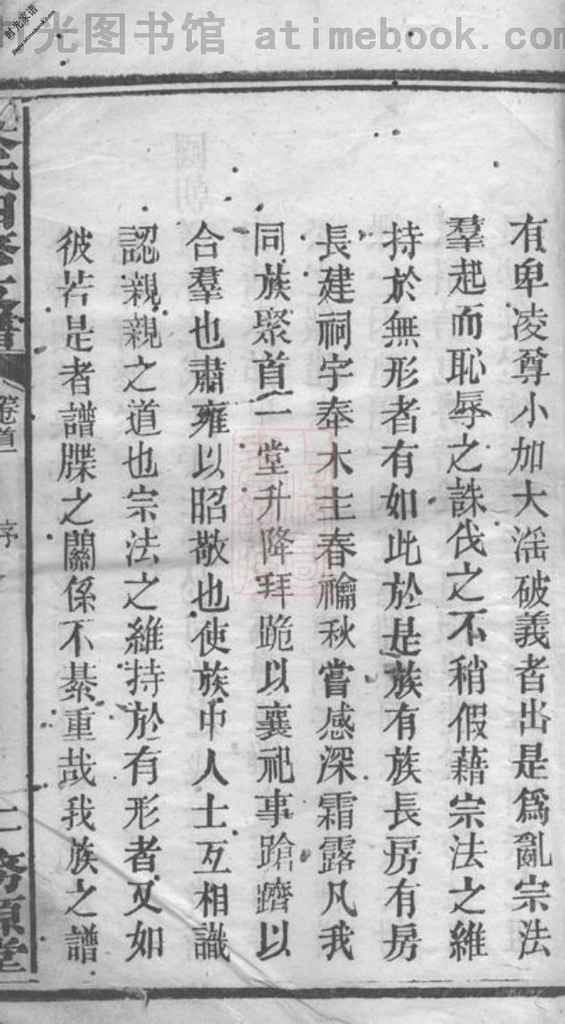 光图书馆 atimebook.com
有卑凌尊小加大淫破義者出是爲亂宗法
羣起而恥辱之誅伐之不稍假藉宗法之維
持於無形者有如此於是族有族長房有房
長建祠宇奉木主春禴秋嘗感深霜露凡我
同族聚首一堂升降拜跪以襄祀事蹌蹌以
合羣也肅雍以昭敬也使族中人士互相識
認親親之道也宗法之維持於有形者又如
彼若是者譜牒之關係不綦重哉我族之譜
氏四修族譜
卷首
序
二
源堂